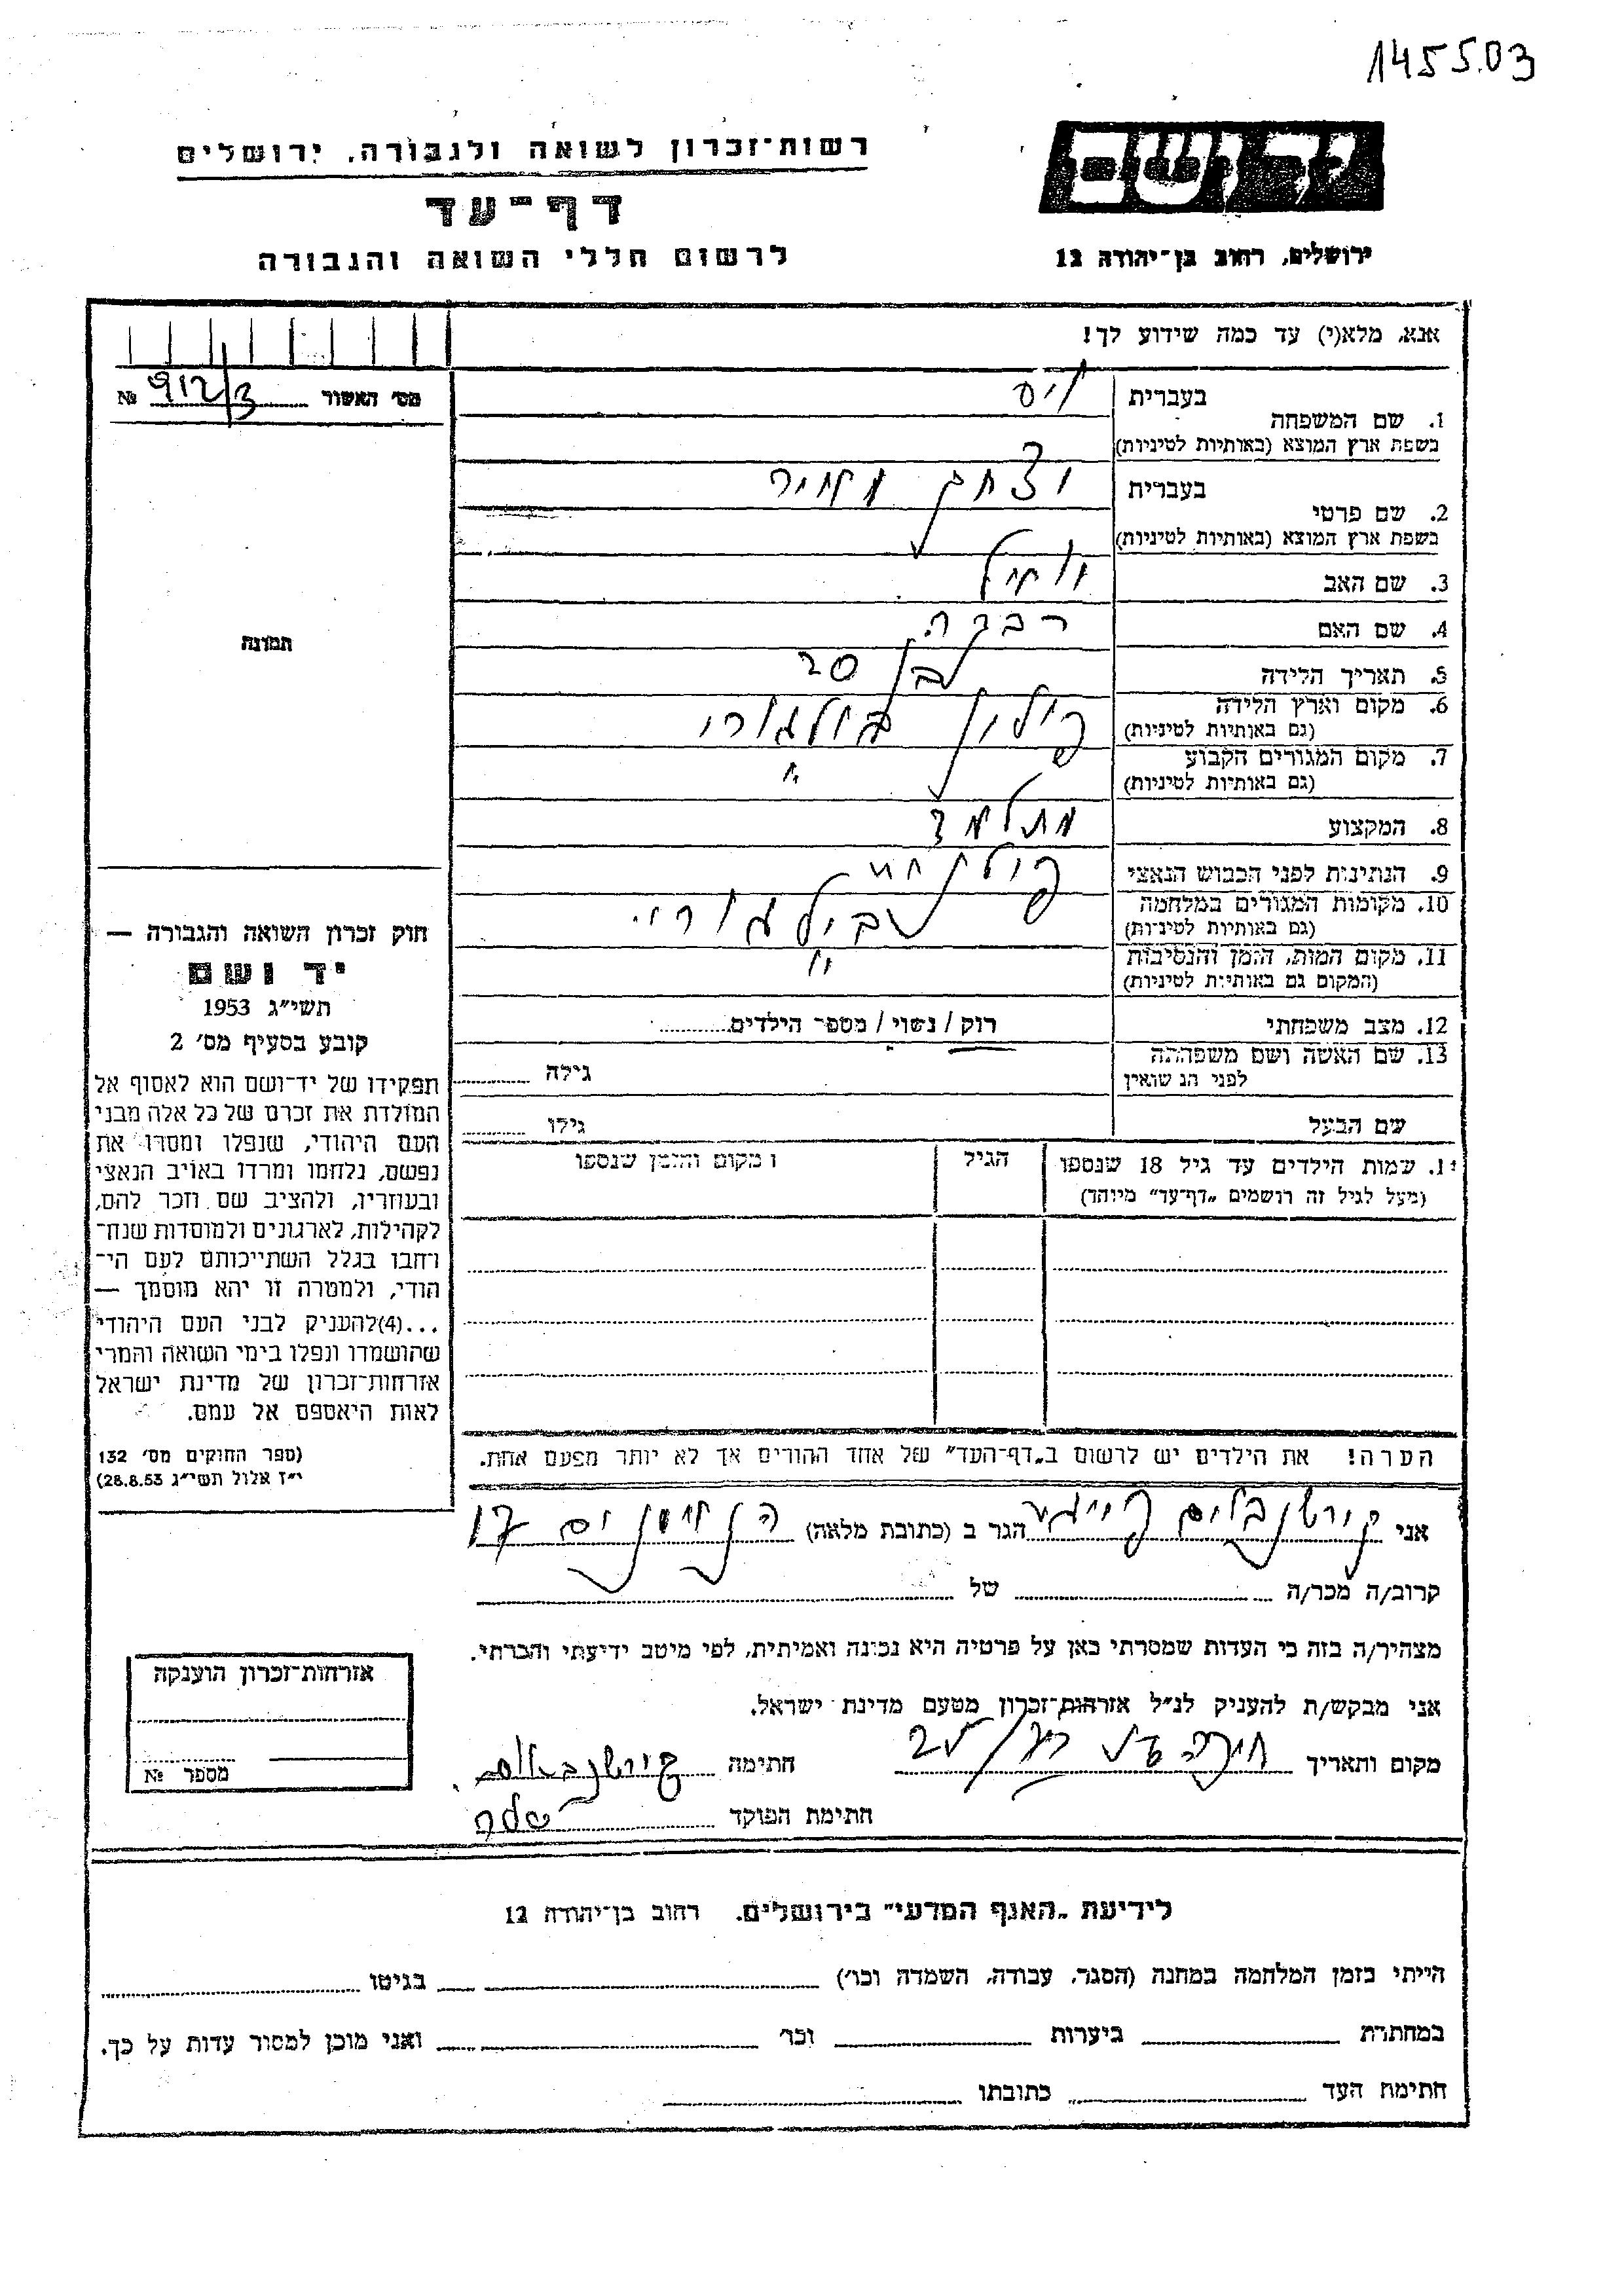 145503
רשות־זכרון לשואה ולגבורה, ירושלים
דף־עד
לרשום חללי השואה והגבורה
ירושלים, רחוב בן־יהודה 12
אנא, מלא(י) עד כמה שידוע לך!
מס׳ האשור 912/3 №
1. שם המשפחה
בעברית
בשפת ארץ המוצא (באותיות לטיניות)
2. שם פרטי
בעברית יצחק מאיר
בשפת ארץ המוצא (באותיות לטיניות)
3. שם האב
4. שם האם רבקה
5. תאריך הלידה בן 20
6. מקום וארץ הלידה פולין
(גם באותיות לטיניות)
7. מקום המגורים הקבוע
(גם באותיות לטיניות)
8. המקצוע תלמד
9. הנתינות לפני הכבוש הנאצי
10. מקומות המגורים במלחמה בילגורי
(גם באותיות לטיניות)
11. מקום המות, הזמן והנסיבות "
(המקום גם באותיות לטיניות)
12. מצב משפחתי רוק / נשוי / מספר הילדים
13. שם האשה ושם משפחתה
לפני הנשואין
גילה
שם הבעל גילו
שמות הילדים עד גיל 18 שנספו הגיל מקום והזמן שנספו
(מעל לגיל זה רושמים „דף־עד” מיוחד)
הערה! את הילדים יש לרשום ב„דף־העד” של אחד ההורים אך לא יותר מפעם אחת.
תמונה
חוק זכרון השואה והגבורה —
יד ושם
תשי״ג 1953
קובע בסעיף מס׳ 2
תפקידו של יד־ושם הוא לאסוף אל
המולדת את זכרם של כל אלה מבני
העם היהודי, שנפלו ומסרו את
נפשם, נלחמו ומרדו באויב הנאצי
ובעוזריו, ולהציב שם וזכר להם,
לקהילות, לארגונים ולמוסדות שנח־
רחבו בגלל השתייכותם לעם הי־
הודי, ולמטרה זו יהא מוסמך —
...(4)להעניק לבני העם היהודי
שהושמדו ונפלו בימי השואה והמרי
אזרחות־זכרון של מדינת ישראל
לאות היאספם אל עמם.
(ספר החוקים מס׳ 132
י״ז אלול תשי״ג 28.8.53)
אני הגר ב (כתובת מלאה)
קרוב/ה מכר/ה של
מצהיר/ה בזה כי העדות שמסרתי כאן על פרטיה היא נכונה ואמיתית, לפי מיטב ידיעתי והכרתי.
אני מבקש/ת להעניק לנ״ל אזרחות־זכרון מטעם מדינת ישראל.
מקום ותאריך חיפה
חתימה
חתימת הפוקד
אזרחות־זכרון הוענקה
מספר №
לידיעת „האגף המדעי” בירושלים. רחוב בן־יהודה 12
הייתי בזמן המלחמה במחנה (הסגר, עבודה, השמדה וכו׳) בגיטו
במחתרת ביערות וכו׳ ואני מוכן למסור עדות על כך.
חתימת העד כתובתו